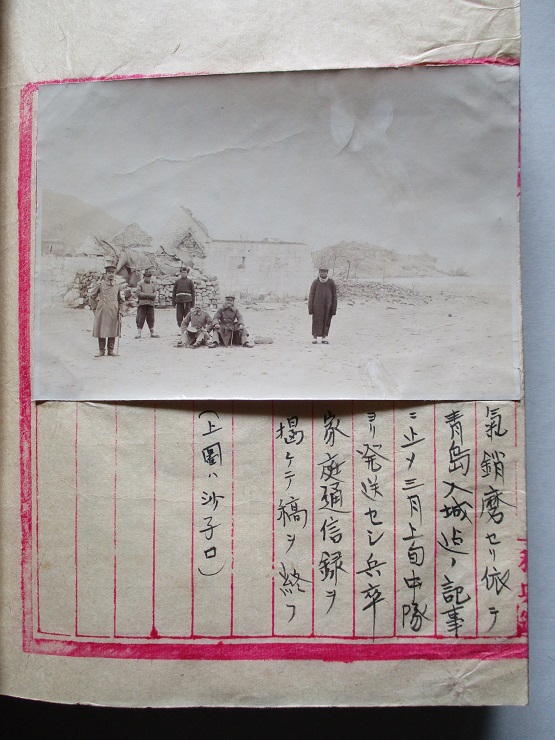 氣銷磨セリ依テ
青島入城迄ノ記事
ニ止メ三月上旬中隊
ヨリ発送セシ兵卒
家庭通信録ヲ
掲ケテ稿ヲ終フ
(上圖ハ沙子口)